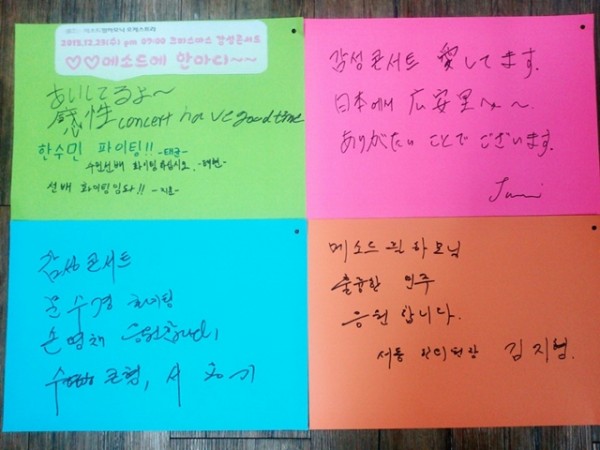 메소드필하모닉 오케스트라
2015.12.23(수) pm 07:00 크리스마스 감성콘서트
♡♡메소드에 안아디~~
あいしてるよ~
感性 concert have good time
한수민 파이팅!! -태균-
수민선배 화이팅하십시오.
선배 화이팅입니다!! -지훈-
감성콘서트 愛してます.
日本에서 広安里へ~.
ありがたい ことでございます.
감성콘서트
문수경 화이팅
손명채 응원합니다!
메소드 필하모닉
훌륭한 연주
응원합니다.
김지형.